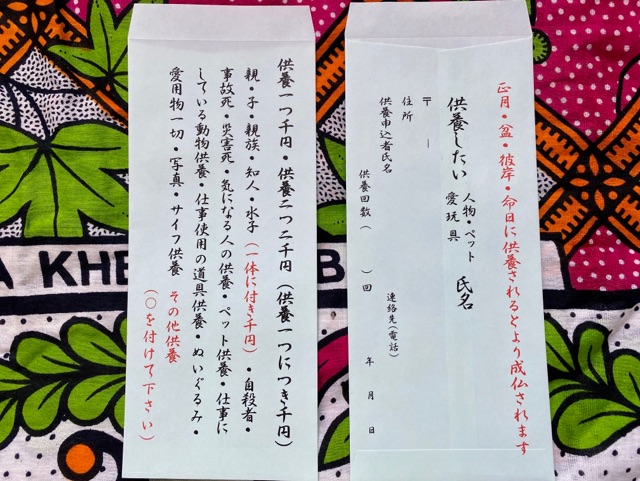 正月・盆・彼岸・命日に供養されるとより成仏されます
供養したい 人物・ペット 愛玩具 氏名
〒 ー
住所
供養申込者氏名
連絡先(電話)
供養回数( )回
年 月 日
供養一つ千円・供養二つ二千円(供養一つにつき千円)
親・子・親族・知人・水子(一体に付き千円)・自殺者・
事故死・災害死・気になる人の供養・ペット供養・仕事に
している動物供養・仕事使用の道具供養・ぬいぐるみ・
愛用物一切・写真・サイフ供養 その他供養
(○を付けて下さい)
KHE
B